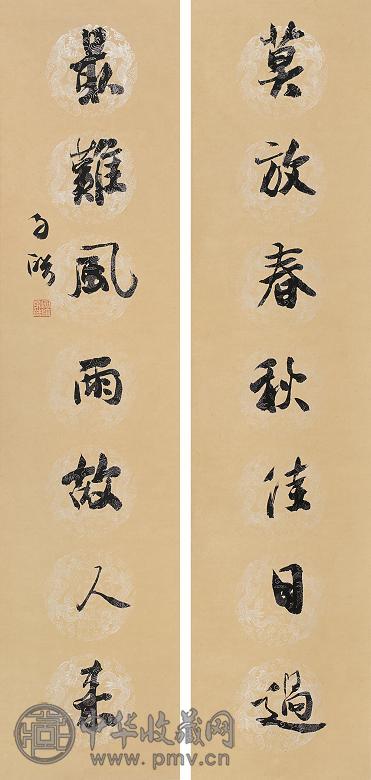 莫放春秋佳日過
最難風雨故人來
中华收藏网
www.pmv.cn